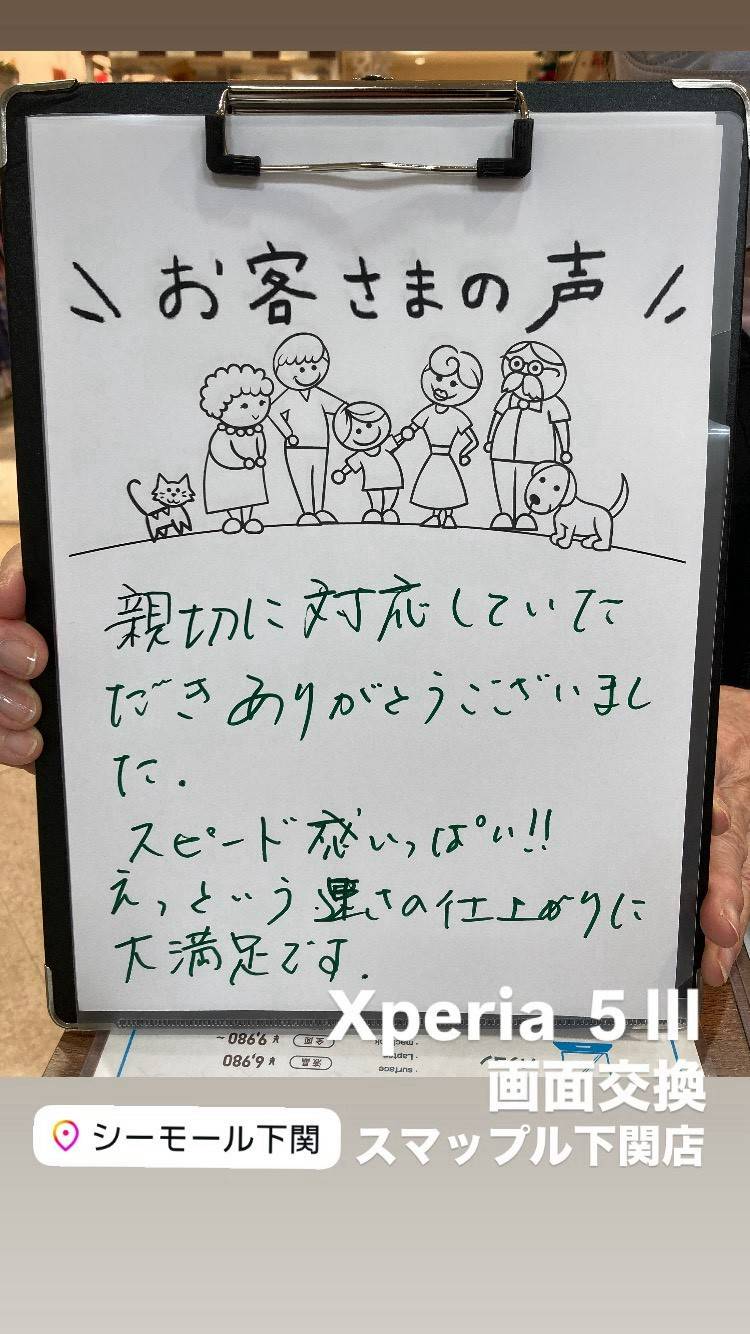 お客さまの声
親切に対応していた
だきありがとうございまし
た.
スピード感いっぱい!!
えっという速さの仕上がりに
大満足です.
Xperia 5 III
画面交換
スマップル下関店
シーモール下関
金属 ¥9,980~
液晶 ¥6,980
macbook
・Laptop
・surface